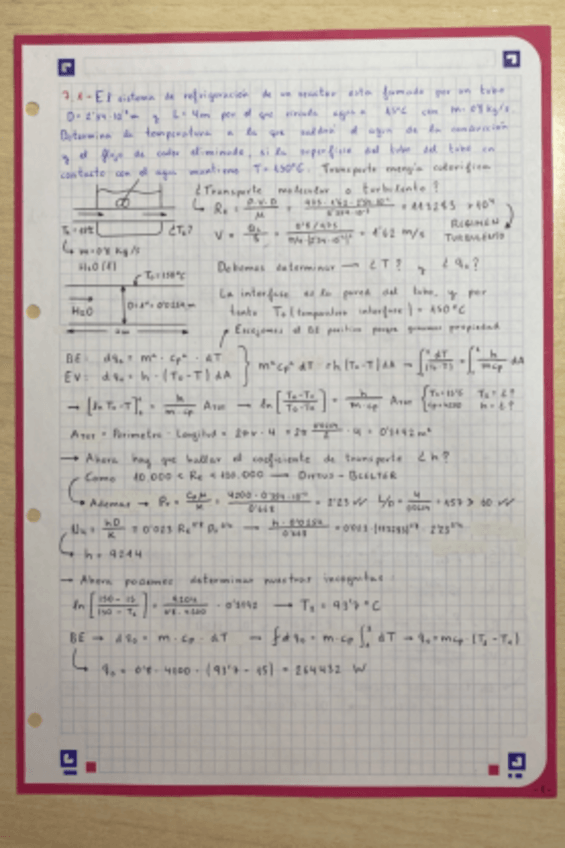 7.1- El sistema de refrigeración de un reactor esta formado por un tubo
D = 2'54·10⁻² m y L = 4m por el que circula agua a 15°C con m = 0'8 kg/s.
Determina la temperatura a la que saldrá el agua de la conducción
y el flujo de calor eliminado, si la superficie del tubo del tubo en
contacto con el agua mantiene T = 150°C. Transporte energía calorífica
¿Transporte molecular o turbulento?
Re = ρ·v·D / μ = = 113283 > 10⁴
V = = 1'62 m/s
REGIMEN TURBULENTO
¿T₂?
m = 0'8 kg/s
H₂O (l)
T₀ = 150°C
H₂O
4m
Debemos determinar → ¿T? y ¿q₀?
La interfase es la pared del tubo, y por
tanto T₀ (temperatura interfase) = 150°C
Escogemos el BE positivo porque ganamos propiedad
BE: dq₀ = m · cp · dT
EV: dq₀ = h · (T₀ - T) dA
m cp dT = h (T₀ - T) dA → ∫ dT/(T₀-T) = ∫ h/(m cp) dA
→ ln [ T₀-T₁ / T₀-T₂ ] = h/(m·cp) ATOT
ATOT = Perimetro · Longitud = 2πr · 4 = 0'3192 m²
→ Ahora hay que hallar el coeficiente de transporte ¿h?
Como 10.000 < Re < 120.000 → DITTUS - BOELTER
Ademas → Pr = cp·μ / k = = 2'23 L/D = = 157 > 60
Nu = hD/k = 0'023 Re^0'8 Pr^0'4
h = 9204
→ Ahora podemos determinar nuestras incognitas:
ln [ 150 - 15 / 150 - T₂ ] = 9204 / 0'8·4200 · 0'3192 → T₂ = 93'7 °C
BE → dq₀ = m · cp · dT → ∫dq₀ = m·cp ∫ dT → q₀ = m cp · (T₂ - T₁)
q₀ = 0'8 · 4200 · (93'7 - 15) = 264432 W